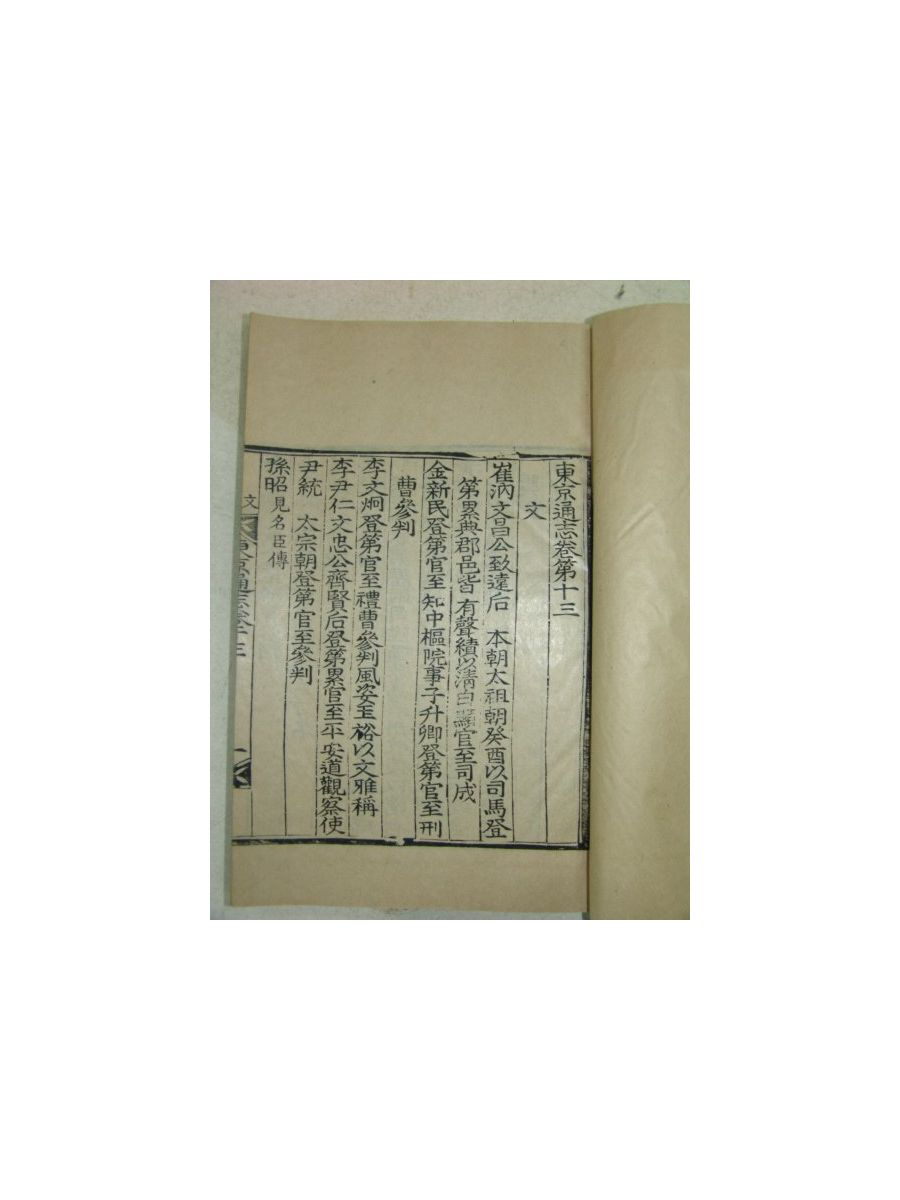 東京通志卷第十三
文
崔汭文昌公致遠后 本朝太祖朝癸酉以司馬登
第累典郡邑皆有聲績以淸白 官至司成
金新民登第官至知中樞院事子升卿登第官至刑
曹參判
李文炯登第官至禮曹參判風姿玉裕以文雅稱
李尹仁文忠公齊賢后登第累官至平安道觀察使
尹統 太宗朝登第官至參判
孫昭見名臣傳
文
東京通志卷十三